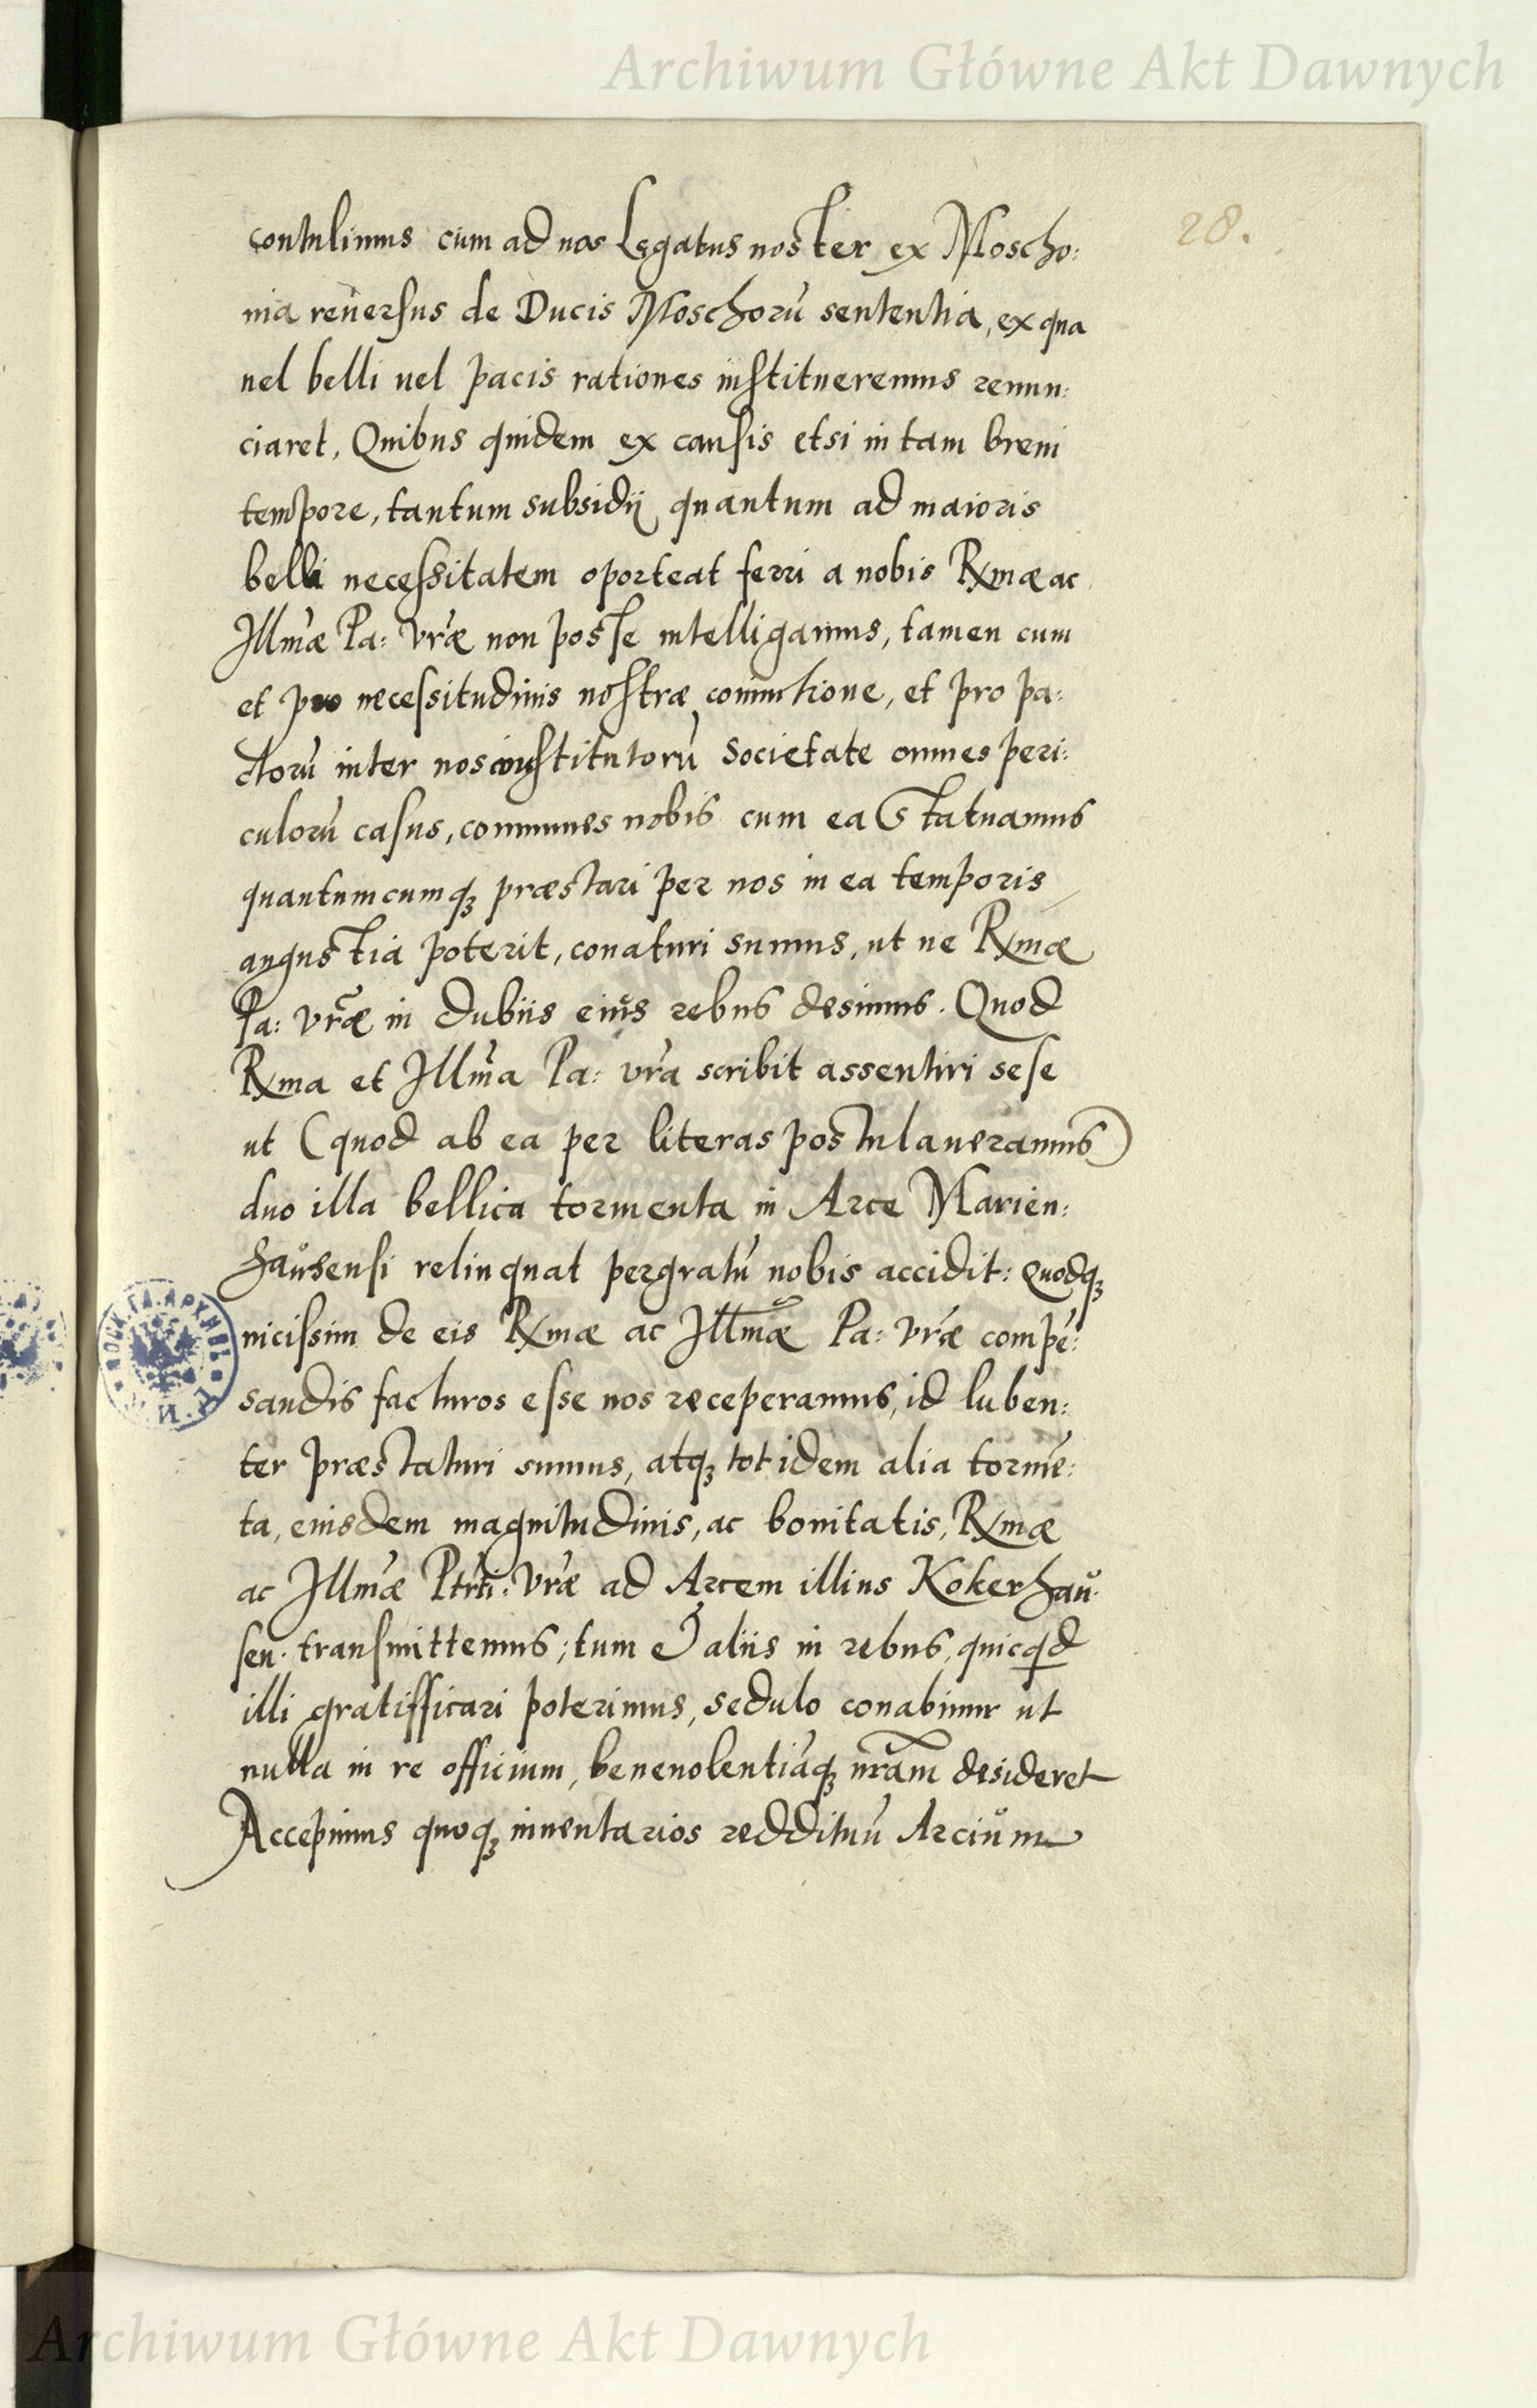 Archiwum Główne Akt Dawnych
28.
contulimus cum ad nos Legatus noster ex Moscho:
uia reuersus de Ducis Moschorū sententia, ex qua
uel belli uel pacis rationes institueremus renun:
ciaret, Quibus quidem ex causis etsi in tam breui
tempore, tantum subsidij quantum ad maioris
belli necessitatem oporteat ferri a nobis Rxmæ ac
Illm̄æ Pa: vr̄æ non posse intelligamus, tamen cum
et pro necessitudinis nostræ coniunctione, et pro pa:
ctorū inter nos constitutorū Societate omnes peri:
culorū casus, communes nobis cum ea Statuamus
quantumcumq; præstari per nos in ea temporis
angustia poterit, conaturi sumus, ut ne Rxmæ
Pa: vr̄æ in dubiis eius rebus desimus. Quod
Rxma et Illm̄a Pa: vr̄a scribit assentiri sese
ut (quod ab ea per literas postulaueramus)
duo illa bellica tormenta in Arce Marien:
haŭsensi relinquat pergratū nobis accidit: Quodq;
uicissim de eis Rxmæ ac Illmæ Pa: vr̄æ compē:
sandis facturos esse nos receperamus, id luben:
ter præstaturi sumus, atq; totidem alia tormē:
ta, eiusdem magnitudinis, ac bonitatis, Rxmæ
ac Illm̄æ Ptrti: vr̄æ ad Arcem illius Kokerhaŭ:
sen. transmittemus; tum & aliis in rebus, quicqd
illi gratifficari poterimus, sedulo conabimur ut
nulla in re officium, beneuolentiāq; nr̄am desideret
Accepimus quoq; inuentariosreddituū Arcium
Archiwum Główne Akt Dawnych